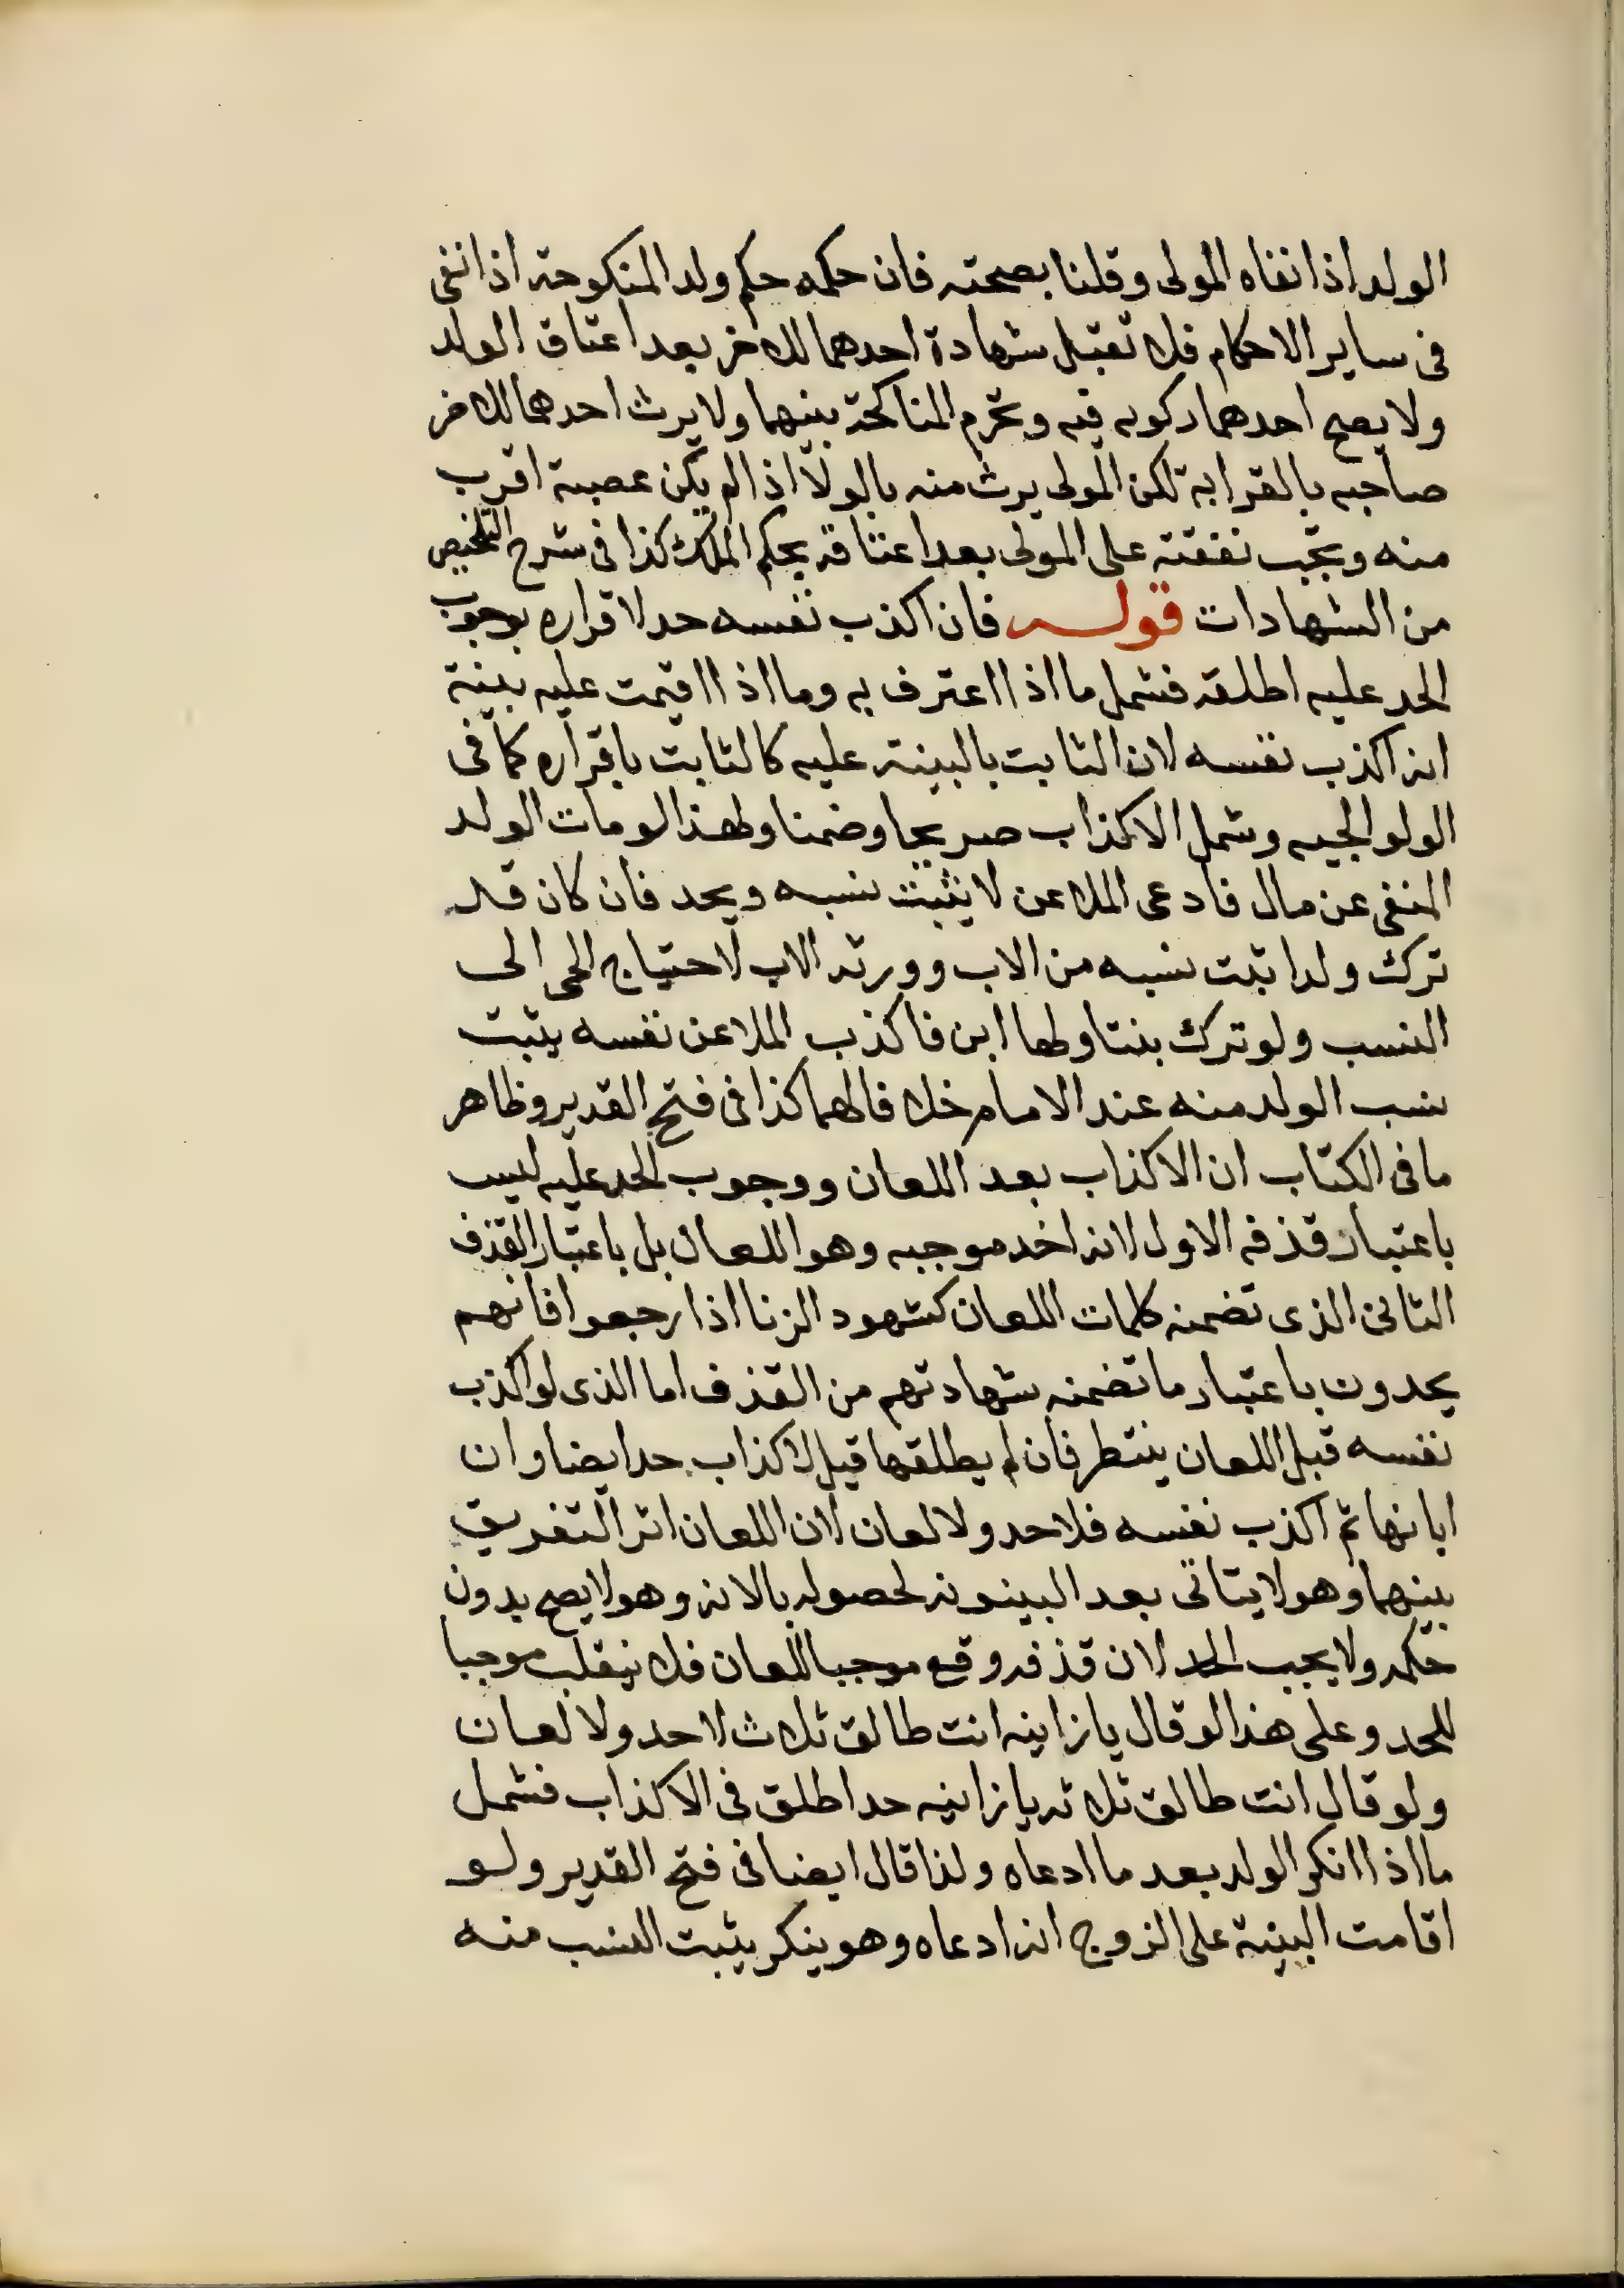 الولد اذا نفاه المولى وقلنا بصحته فان حكمه حكم ولد المنكوحة اذا نفى
فى ساير الاحكام فلا تقبل شهادة احدهما للاخر بعد اعتاق الولد
ولا يصح احدهما ركوبه فيه وتحرم المناكحة بينهما ولا يرث احدهما للاخر
صاحبه بالقرابة لكن المولى يرث منه بالولآ اذا لم يكن عصبة اقرب
منه وتجب نفقته على المولى بعد اعتاقه بحكم الملك كذا فى شرح التلخيص
من الشهادات قوله فان اكذب نفسه حد لاقراره بوجوب
الحد عليه اطلقه فشمل ما اذا اعترف به وما اذا اقيمت عليه بينة
انه اكذب نفسه لان الثابت بالبينة عليه كالثابت باقراره كما فى
الولوالجيه وشمل الاكذاب صريحا وضمنا ولهذا لو مات الولد
المنفى عن مال فادعى الملاعن لا يثبت نسبه ويحد فان كان قد
ترك ولدا ثبت نسبه من الاب وورثه الاب لاحتياج الحى الى
النسب ولو ترك بنتا ولها ابن فاكذب الملاعن نفسه يثبت
نسب الولد منه عند الامام خلافا لهما كذا فى فتح القدير وظاهر
ما فى الكتاب ان الاكذاب بعد اللعان ووجوب الحد عليه ليس
باعتبار قذفه الاول لانه اخد موجبه وهو اللعان بل باعتبار القذف
الثانى الذى تضمنه كلمات اللعان كشهود الزنا اذا رجعوا فانهم
يحدون باعتبار ما تضمنه شهادتهم من القذف اما الذى لو اكذب
نفسه قبل اللعان ينتظر فان لم يطلقها قبل الاكذاب حد ايضا وان
ابانها ثم اكذب نفسه فلا حد ولا لعان لان اللعان اثر التفريق
بينهما وهو لا يتاتى بعد البينونة لحصوله بالانه وهو لا يصح بدون
حكمه ولا يجب الحد لان قذفه وقع موجبا للعان فلا ينقلب موجبا
للحد وعلى هذا لو قال يا زانيه انت طالق ثلاث لا حد ولا لعان
ولو قال انت طالق ثلاثه يا زانيه حد اطلق فى الاكذاب فشمل
ما اذا انكر الولد بعد ما ادعاه ولذا قال ايضا فى فتح القدير ولو
اقامت البينة على الزوج انه ادعاه وهو ينكر يثبت النسب منه